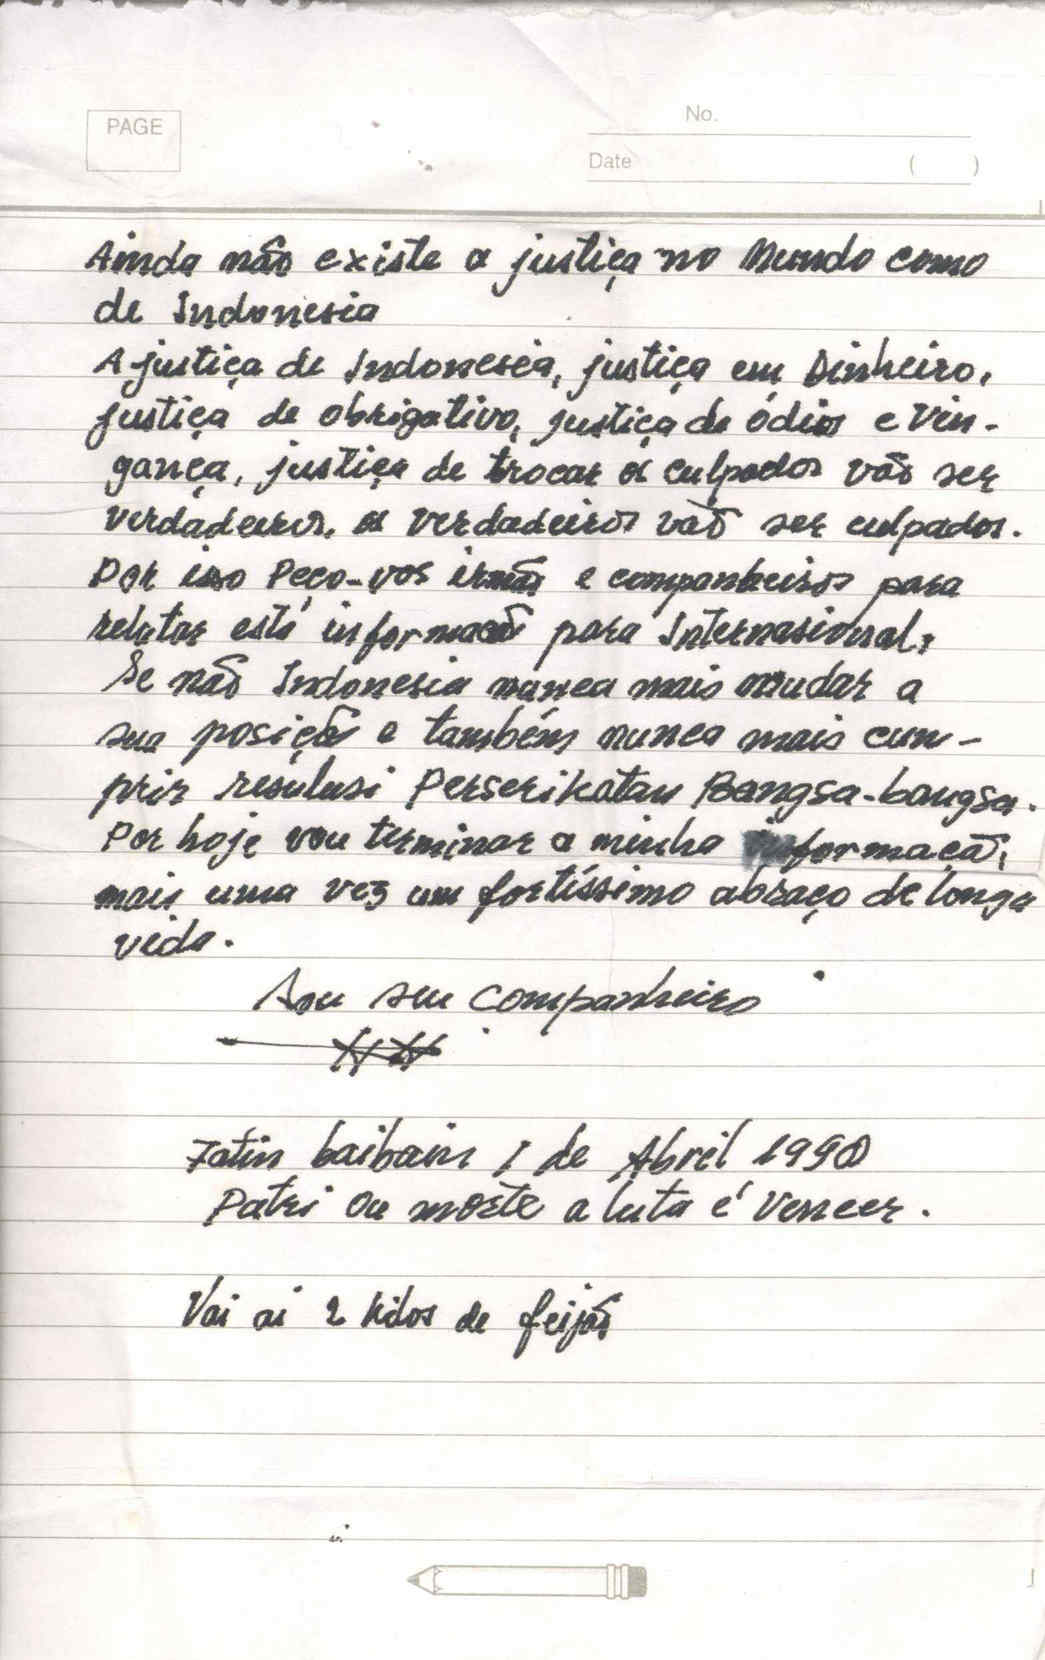 PAGE
No.
Date ( )
Ainda não existe a justiça no Mundo como
de Indonesia
A justiça de Indonesia, justiça em Dinheiro,
justiça de obrigativo, justiça de ódios e vin-
gança, justiça de trocar os culpados vão ser
verdadeiros, os verdadeiros vaõ ser culpados.
Por isso Peço-vos irmãos e companheiros para
relatar está informacaõ para Internasional,
Se naõ Indonesia nunca mais mudar a
sua posiçaõ e também nunca mais cum-
prir resulusi Perserikatan Bangsa-bangsa.
Por hoje vou terminar a minha informaçaõ,
mais uma vez um fortíssimo abraço de longa
vida.
Sou seu companheiro
baibain I de Abril 1990
Patri ou morte a luta é Vencer.
Vai ai 2 kilos de feijão